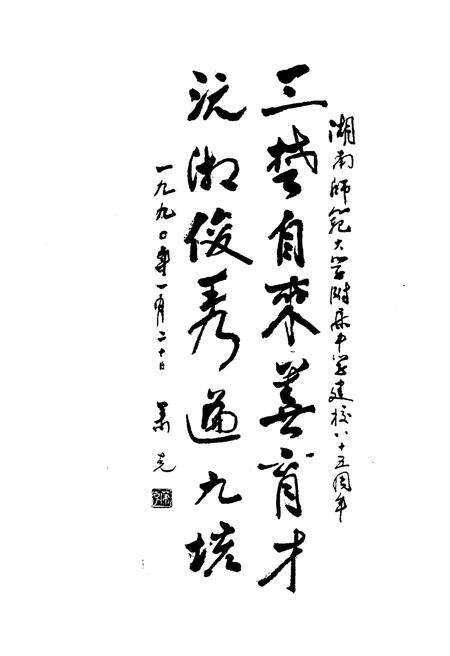 湖南師範大学附属中学建校八十五周年
三楚自來善育才
沅湘俊秀遍九垓
一九九〇年一月二十日
萧克